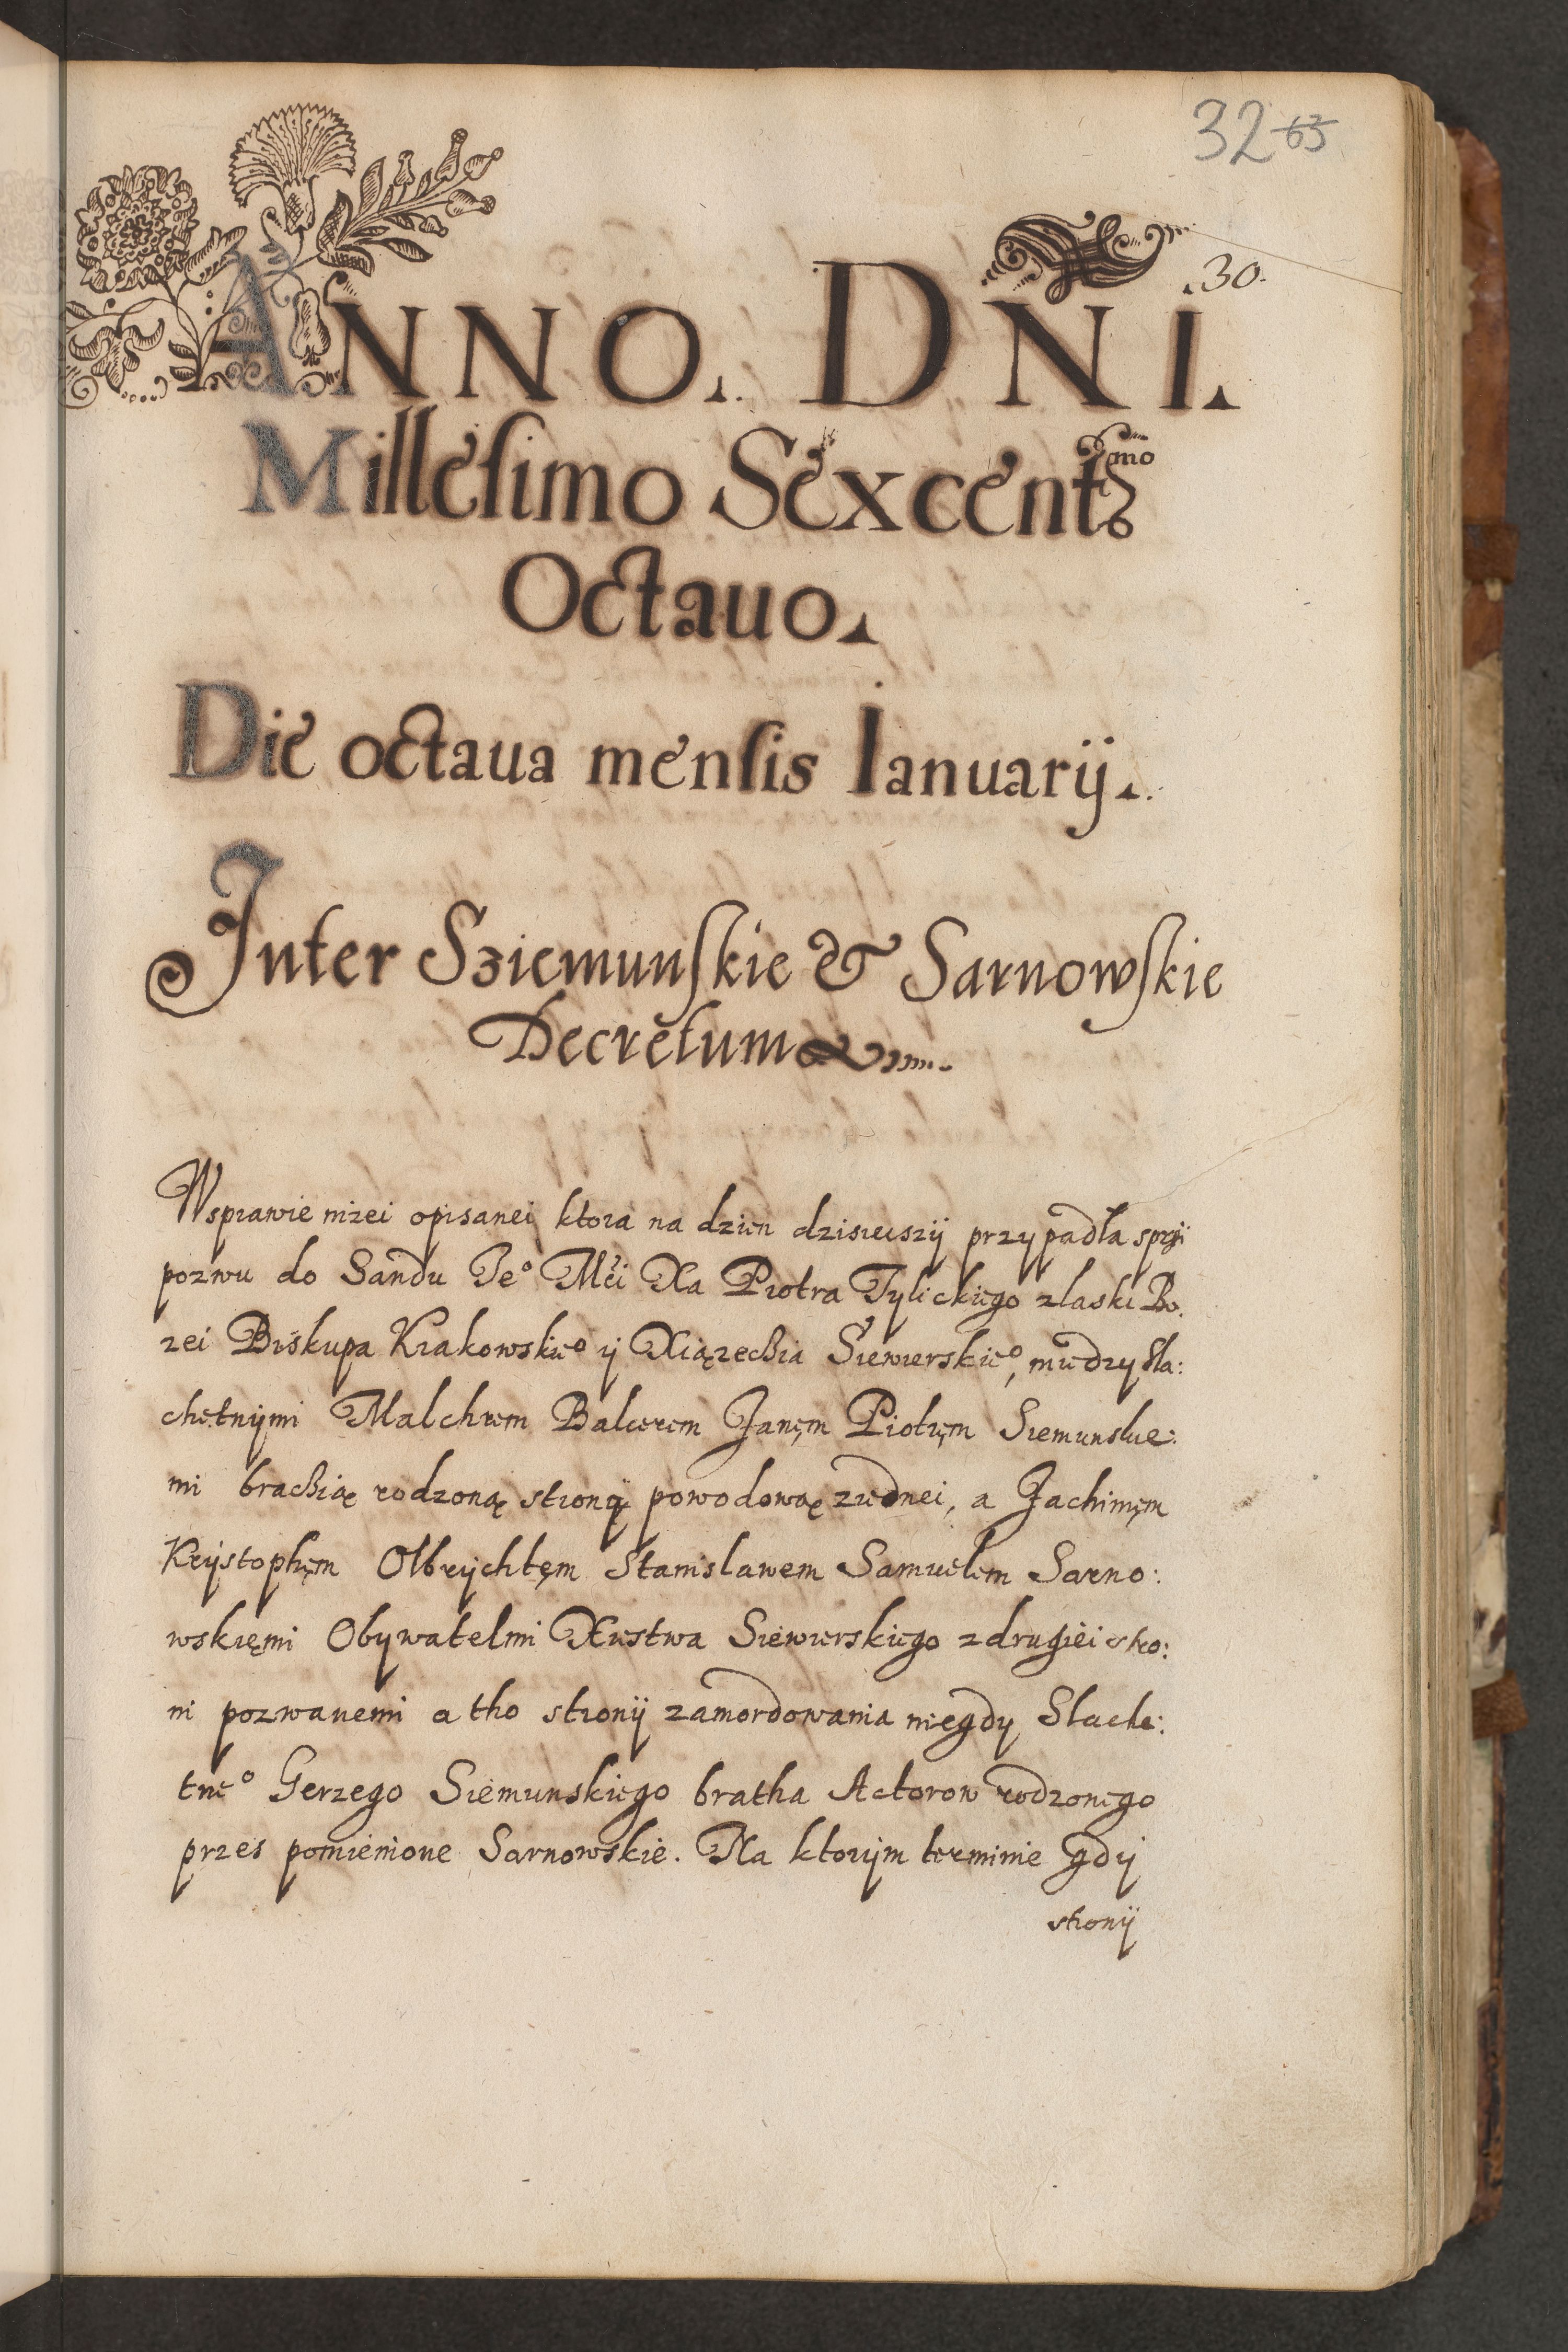 32 63
.30.
ANNO. DNI.
Millesimo Sexcentmo
Octauo.
Die octaua mensis Ianuarij.
Inter Sziemunskie & Sarnowskie
Decretum
W sprawie nizei opisanei ktora na dzien dzisieiszÿ przypadła
pozwu do Sandu Je° Mći Xa Piotra Tylickiego z laski Bo:
zei Biskupa Krakowskie° ÿ Xiązęchia Siewierskie°, miedzy Sla:
chetnÿmi Malchrem Balcerem Janęm Piotręm Siemunskie:
mi brachią rodzoną stroną powodową z iednei, a Jachimęm
Krÿstophęm Olbrÿchtęm Stanislawem Samuelem Sarno:
wskięmi Obÿwatelmi Xiestwa Siewierskiego z drugiei stro:
ni pozwanemi a tho stronÿ zamordowania niegdy Slache:
tne° Gerzego Siemunskiego bratha Actorow rodzonego
przes pomienione Sarnowskie. Na ktorÿm terminie gdÿ
stronÿ